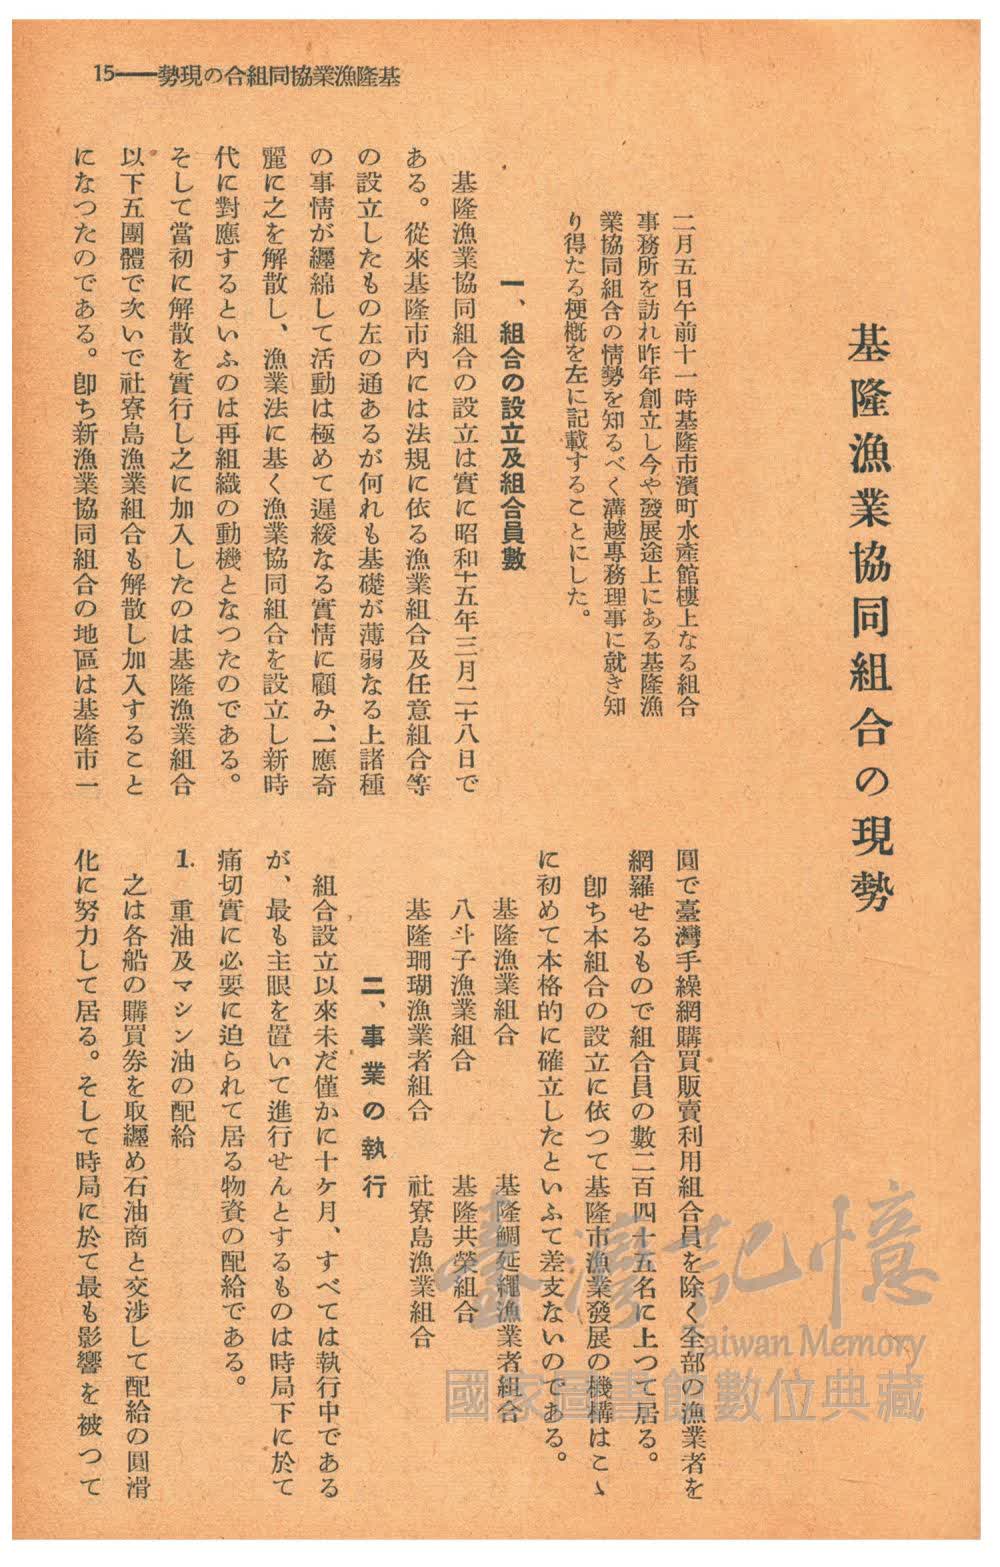 15――勢現の合組同協業漁隆基
基隆漁業協同組合の現勢
二月五日午前十一時基隆市濱町水產館樓上なる組合
事務所を訪れ昨年創立し今や發展途上にある基隆漁
業協同組合の情勢を知るべく溝越專務理事に就き知
り得たる梗槪を左に記載することにした。
一、組合の設立及組合員數
基隆漁業協同組合の設立は實に昭和十五年三月二十八日で
ある。從來基隆市內には法規に依る漁業組合及任意組合等
の設立したもの左の通あるが何れも基礎が薄弱なる上諸種
の事情が纒綿して活動は極めて遲緩なる實情に顧み、一應奇
麗に之を解散し、漁業法に基く漁業協同組合を設立し新時
代に對應するといふのは再組織の動機となつたのである。
そして當初に解散を實行し之に加入したのは基隆漁業組合
以下五團體で次いで社寮島漁業組合も解散し加入すること
になつたのである。卽ち新漁業協同組合の地區は基隆市一
圓で臺灣手繰網購買販賣利用組合員を除く全部の漁業者を
網羅せるもので組合員の數二百四十五名に上つて居る。
卽ち本組合の設立に依つて基隆市漁業發展の機構はこゝ
に初めて本格的に確立したといふて差支ないのである。
基隆漁業組合　基隆鯛延繩漁業者組合
八斗子漁業組合　基隆共榮組合
基隆珊瑚漁業者組合　社寮島漁業組合
二、事業の執行
組合設立以來未だ僅かに十ケ月、すべては執行中である
が、最も主眼を置いて進行せんとするものは時局下に於て
痛切實に必要に迫られて居る物資の配給である。
1. 重油及マシン油の配給
之は各船の購買券を取纒め石油商と交涉して配給の圓滑
化に努力して居る。そして時局に於て最も影響を被つて
臺灣記憶
Taiwan Memory
國家圖書館數位典藏